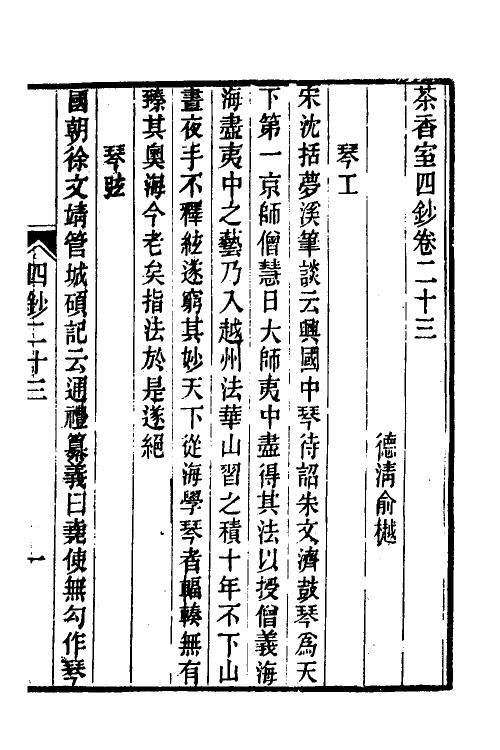 茶香室四鈔卷二十三
德清俞樾
琴工
宋沈括夢溪筆談云興國中琴待詔朱文濟鼓琴爲天
下第一京師僧慧日大師夷中盡得其法以授僧義海
海盡夷中之藝乃入越州法華山習之積十年不下山
晝夜手不釋絃遂窮其妙天下從海學琴者輻輳無有
臻其奧海今老矣指法於是遂絕
琴弦
國朝徐文靖管城碩記云通禮纂義曰堯使無勾作琴
四鈔二十三
一